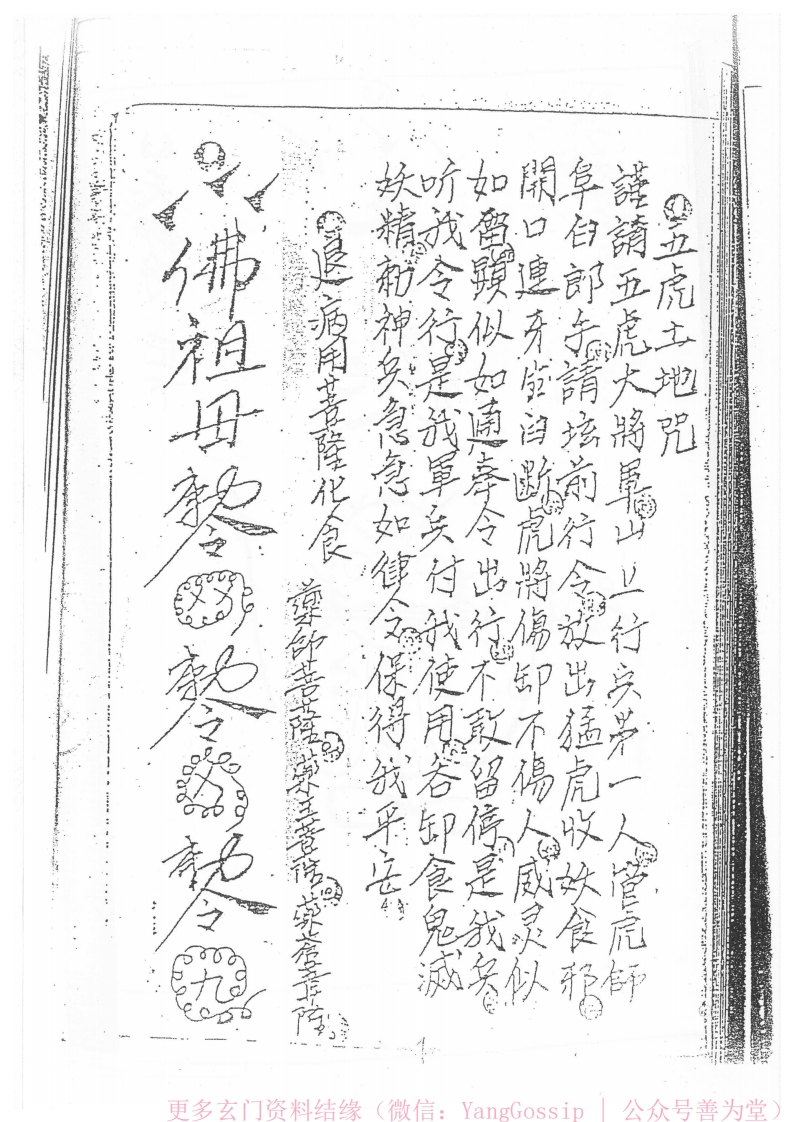 五虎土地咒
謹請五虎大將軍山上行兵第一人管虎師
阜臼郎午請坛前行令放出猛虎收妖食邪
開口連牙臼断虎將傷卸不傷人威灵似
如留顕似如通奉令出行不敢留停是我兵
听我令行是我軍兵付我使用谷卸食鬼滅
妖精神兵急急如律令保得我平安
退病用菩薩化食
藥師菩薩藥王菩薩藥菩薩
佛祖母勅令勅令勅令九
更多玄门资料结缘（微信：YangGossip | 公众号善为堂）